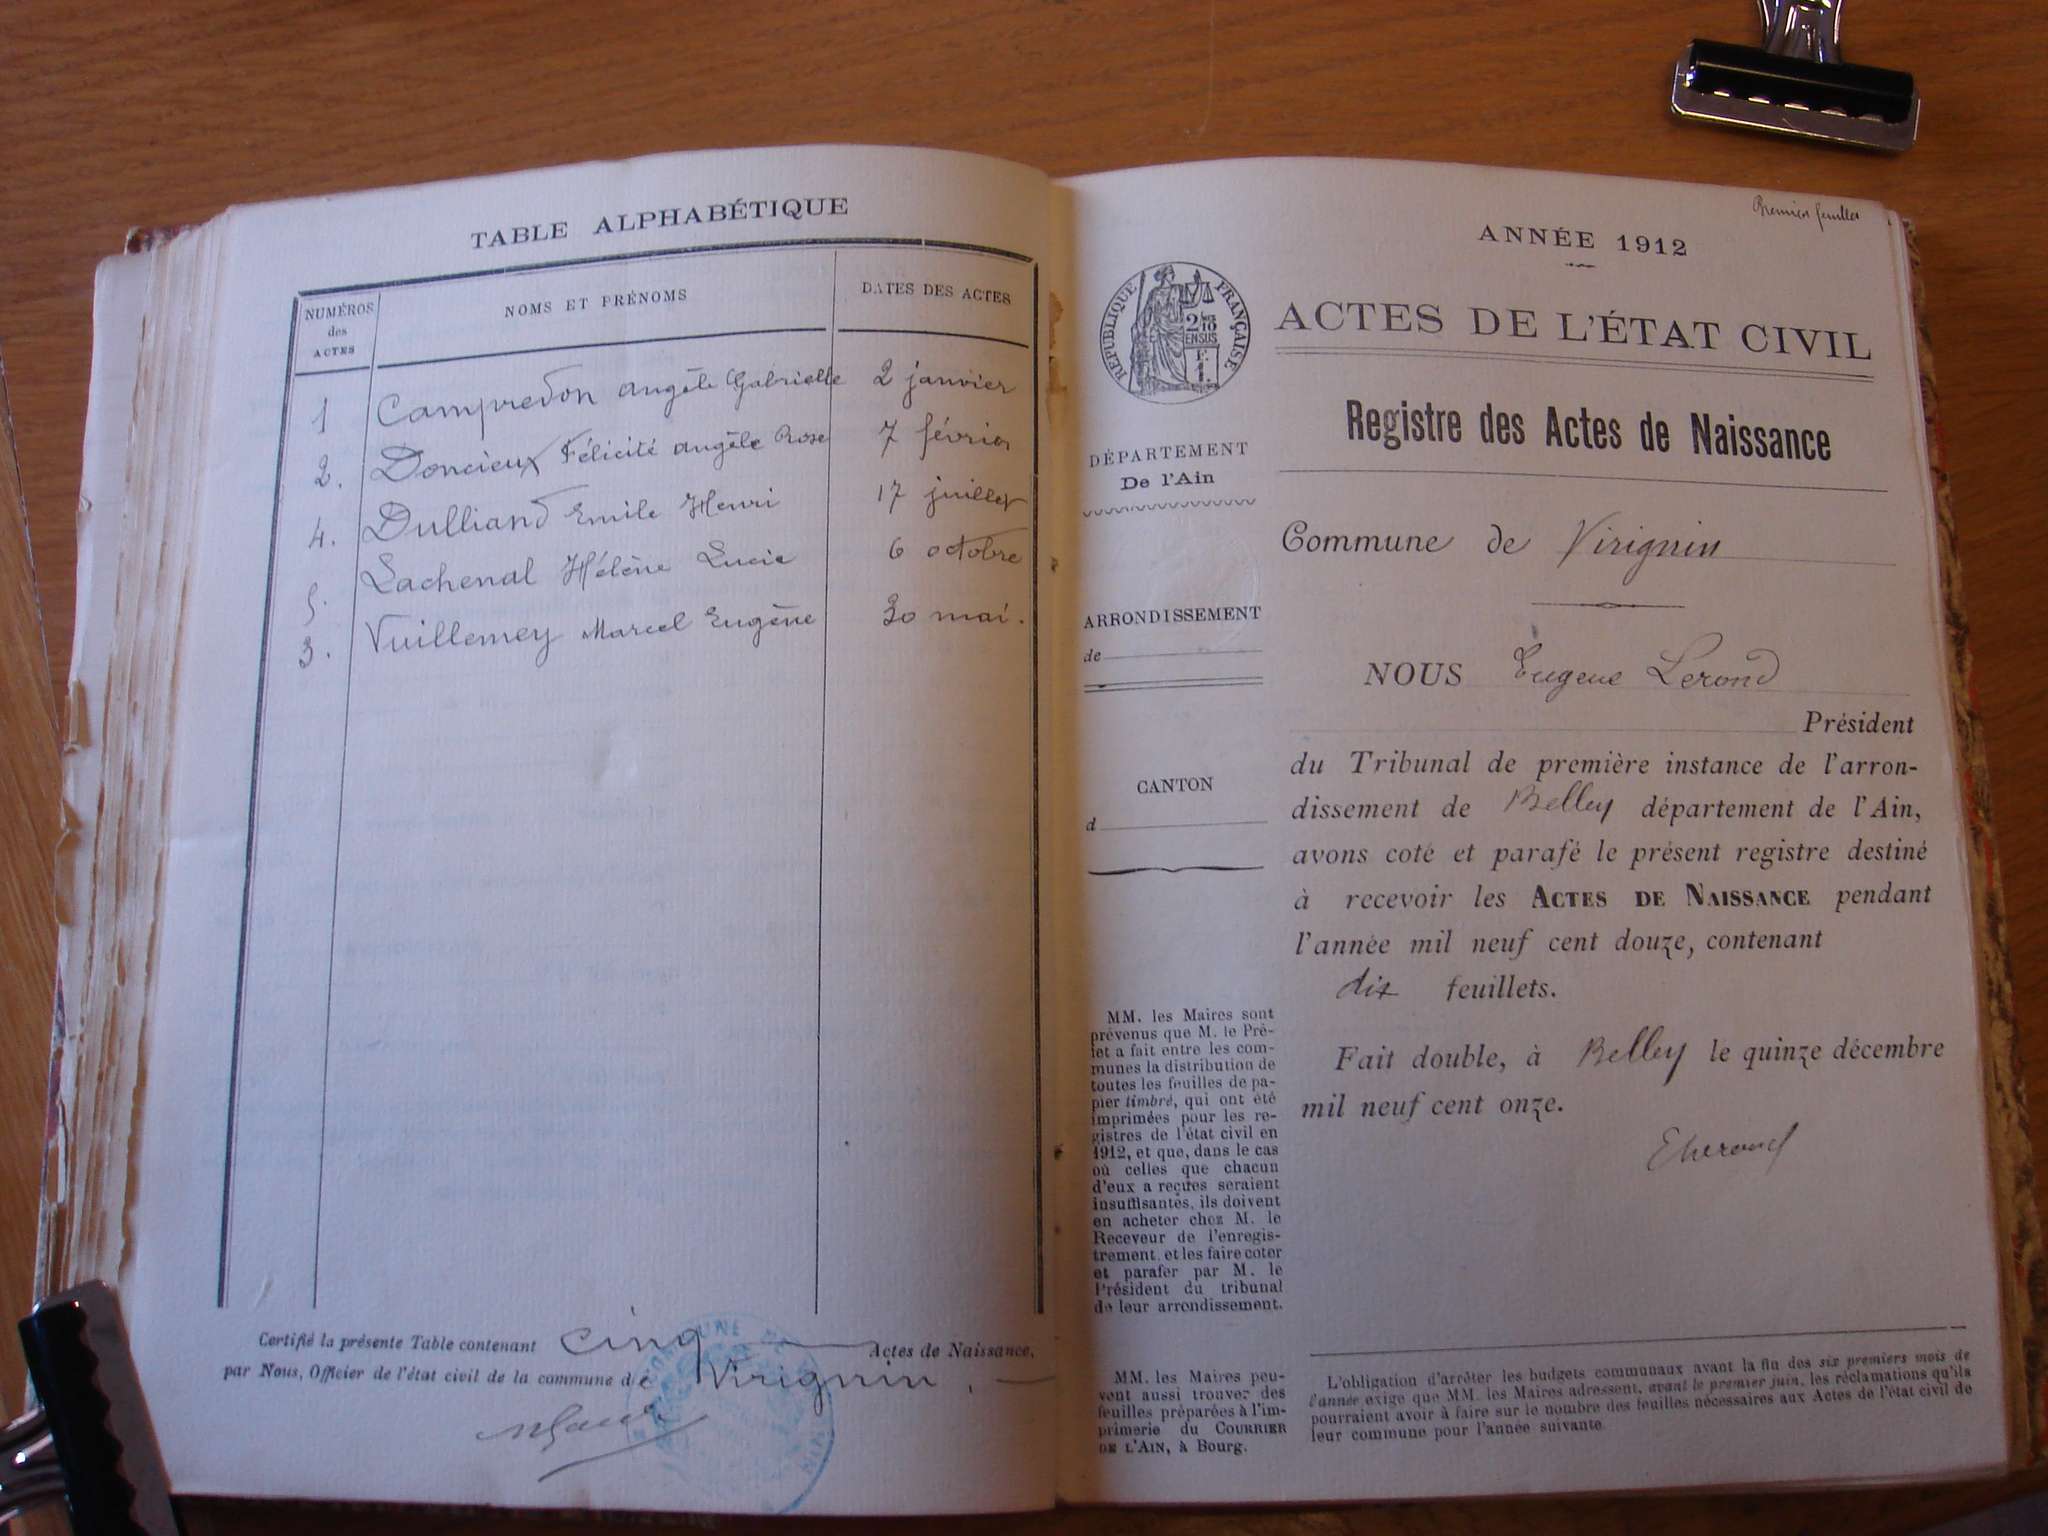 TABLE ALPHABÉTIQUE
NUMÉROS des ACTES
NOMS ET PRÉNOMS
DATES DES ACTES
1 Campredon Angèle Gabrielle 2 janvier
2. Doncieux Félicité Angèle Rose 7 février
4. Dulliand Emile Henri 17 juillet
5. Lachenal Hélène Lucie 6 octobre
3. Vuillemey Marcel Eugène 30 mai.
Certifié la présente Table contenant cinq Actes de Naissance,
par Nous, Officier de l'état civil de la commune de Virignin.
Premier feuillet
ANNÉE 1912
RÉPUBLIQUE FRANÇAISE
2/10
EN SUS
ACTES DE L'ÉTAT CIVIL
Registre des Actes de Naissance
DÉPARTEMENT
De l'Ain
Commune de Virignin
ARRONDISSEMENT
de
NOUS Eugene Lerond
Président
du Tribunal de première instance de l'arron-
dissement de Belley département de l'Ain,
avons coté et parafé le présent registre destiné
à recevoir les ACTES DE NAISSANCE pendant
l'année mil neuf cent douze, contenant
dix feuillets.
Fait double, à Belley le quinze décembre
mil neuf cent onze.
CANTON
d
MM. les Maires sont
prévenus que M. le Pré-
fet a fait entre les com-
munes la distribution de
toutes les feuilles de pa-
pier timbré, qui ont été
imprimées pour les re-
gistres de l'état civil en
1912, et que, dans le cas
où celles que chacun
d'eux a reçues seraient
insuffisantes, ils doivent
en acheter chez M. le
Receveur de l'enregis-
trement, et les faire coter
et parafer par M. le
Président du tribunal
de leur arrondissement.
MM. les Maires peu-
vent aussi trouver des
feuilles préparées à l'im-
primerie du COURRIER
DE L'AIN, à Bourg.
L'obligation d'arrêter les budgets communaux avant la fin des six premiers mois de
l'année exige que MM. les Maires adressent, avant le premier juin, les réclamations qu'ils
pourraient avoir à faire sur le nombre des feuilles nécessaires aux Actes de l'état civil de
leur commune pour l'année suivante.